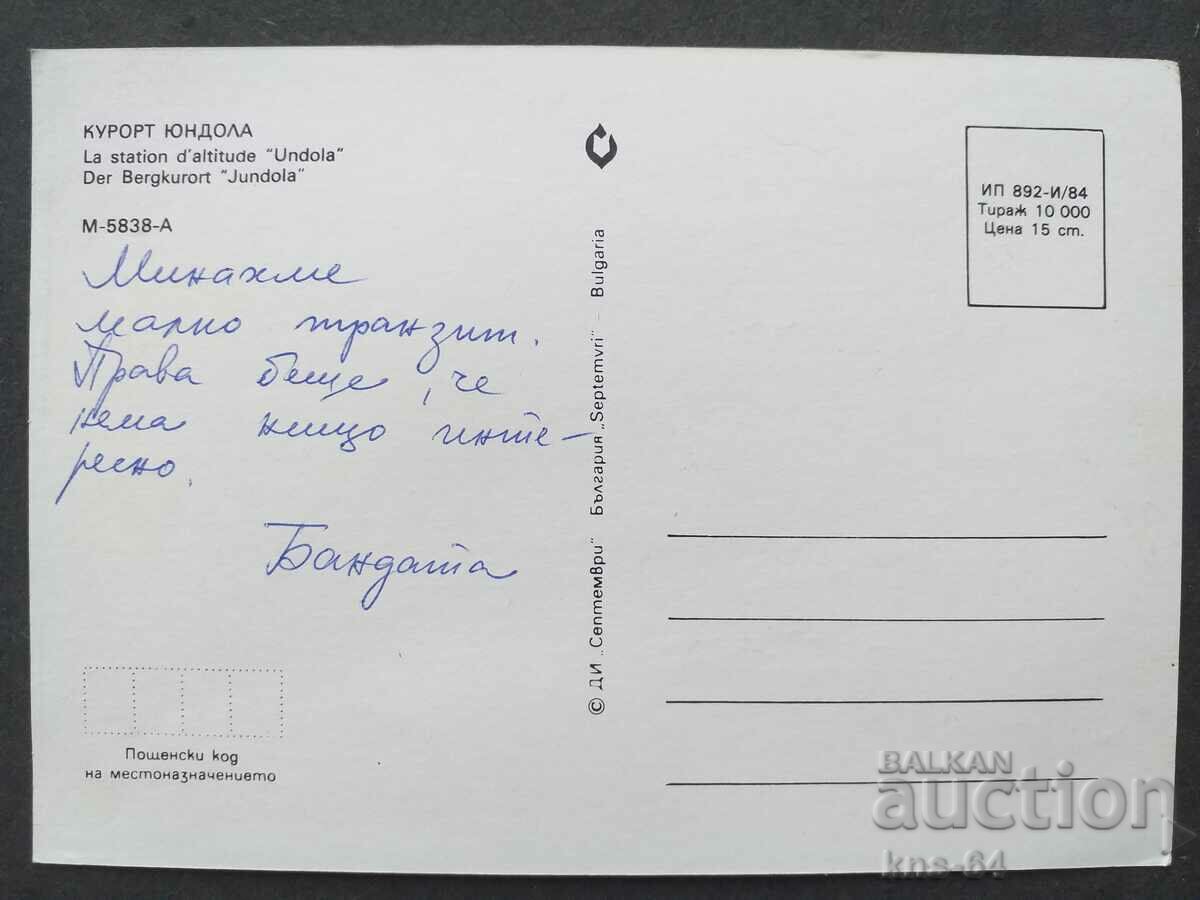 КУРОРТ ЮНДОЛА
La station d'altitude "Undola"
Der Bergkurort "Jundola"
М-5838-А
Минахме
малко транзит.
Права беше, че
нема нищо инте-
ресно.
Бандата
Пощенски код
на местоназначението
© ДИ „Септември" България „Septemvri" – Bulgaria
ИП 892-И/84
Тираж 10 000
Цена 15 ст.
BALKAN
auction
kns-64